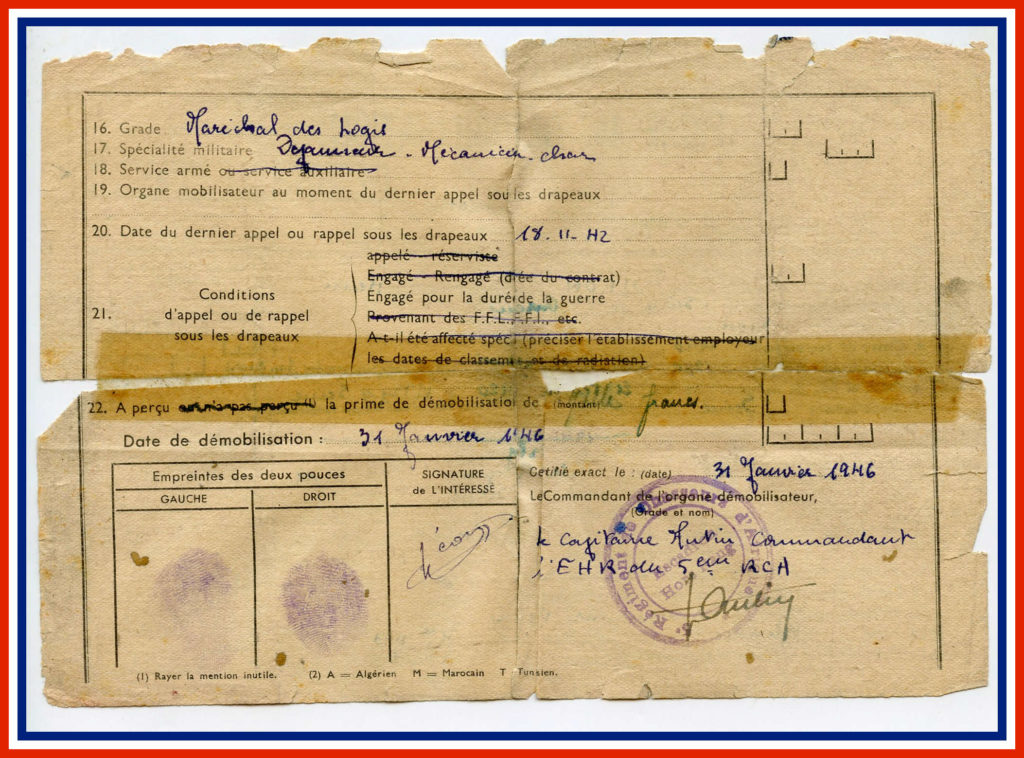 16. Grade Maréchal des Logis
17. Spécialité militaire Dépanneur - Mécanicien - char
18. Service armé ou service auxiliaire
19. Organe mobilisateur au moment du dernier appel sous les drapeaux
20. Date du dernier appel ou rappel sous les drapeaux 18.11.42
21. Conditions d'appel ou de rappel sous les drapeaux
appelé - réserviste
Engagé - Rengagé (durée du contrat)
Engagé pour la durée de la guerre
Provenant des F.F.L.F.F.I., etc.
A-t-il été affecté spécial (préciser l'établissement employeur
les dates de classement et de radiation)
22. A perçu ou n'a pas perçu (1) la prime de démobilisation de (montant) francs.
Date de démobilisation : 31 Janvier 1946
Empreintes des deux pouces
GAUCHE DROIT
SIGNATURE
de L'INTÉRESSÉ
Certifié exact le : (date) 31 Janvier 1946
Le Commandant de l'organe démobilisateur,
(Grade et nom)
le Capitaine Commandant
l'EHR du 5eme RCA
5e Régiment de Chasseurs d'Afrique
(1) Rayer la mention inutile. (2) A = Algérien M = Marocain T Tunisien.